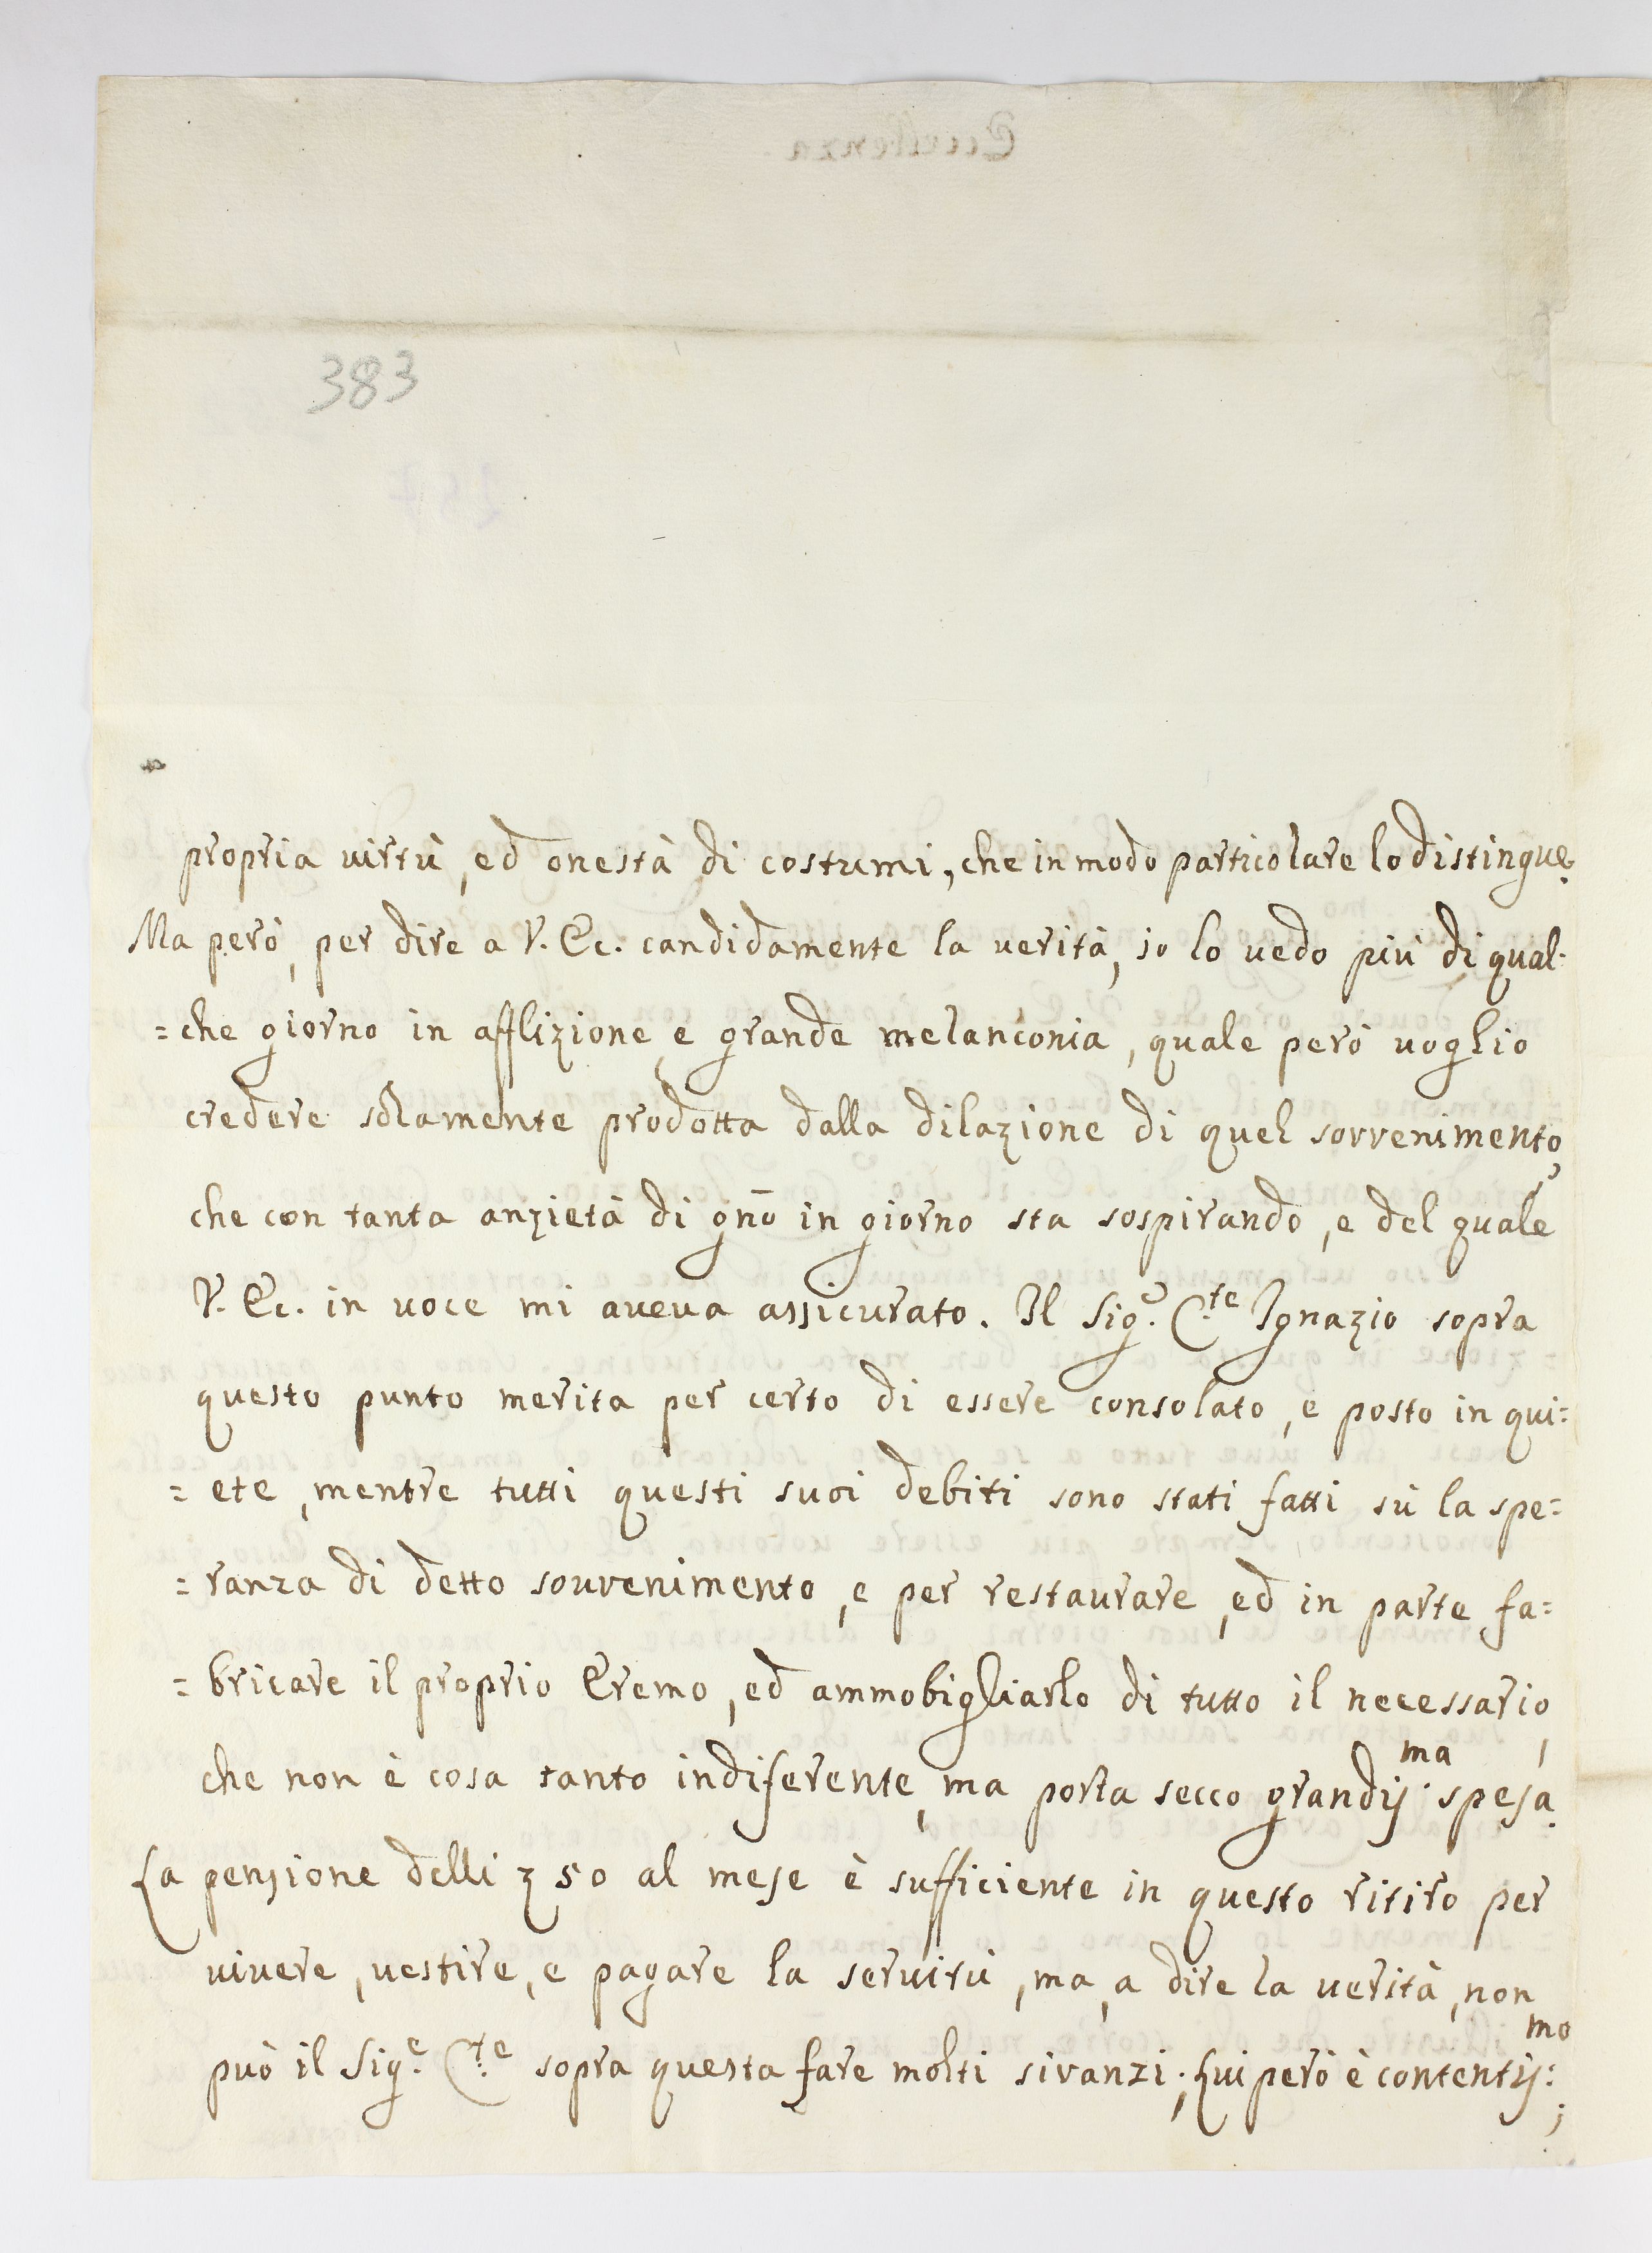 383
propria virtù, ed onestà di costumi, che in modo particolare lo distingue.
Ma però, per dire a V. Ec. candidamente la verità, io lo vedo più di qual-
=che giorno in afflizione, e grande melanconia, quale però voglio
credere solamente prodotta dalla dilazione di quel sovvenimento,
che con tanta anzietà di gno in giorno sta sospirando, e del quale
V. Ec. in voce mi aveva assicurato. Il Sig.e C.te Ignazio sopra
questo punto merita per certo di essere consolato, e posto in qui=
=ete, mentre tutti questi suoi debiti sono stati fatti sù la spe=
=ranza di detto souvenimento, e per restaurare, ed in parte fa=
=bricare il proprio Eremo, ed ammobigliarlo di tutto il necessario,
che non è cosa tanto indiferente, ma porta secco grandiss.ma spesa.
La pensione delli z 50 al mese è sufficiente in questo ritiro per
vivere, vestire, e pagare la servitù, ma, a dire la verità, non
può il Sig.e C.te sopra questa fare molti sivanzi; Lui però è contentiss:mo;